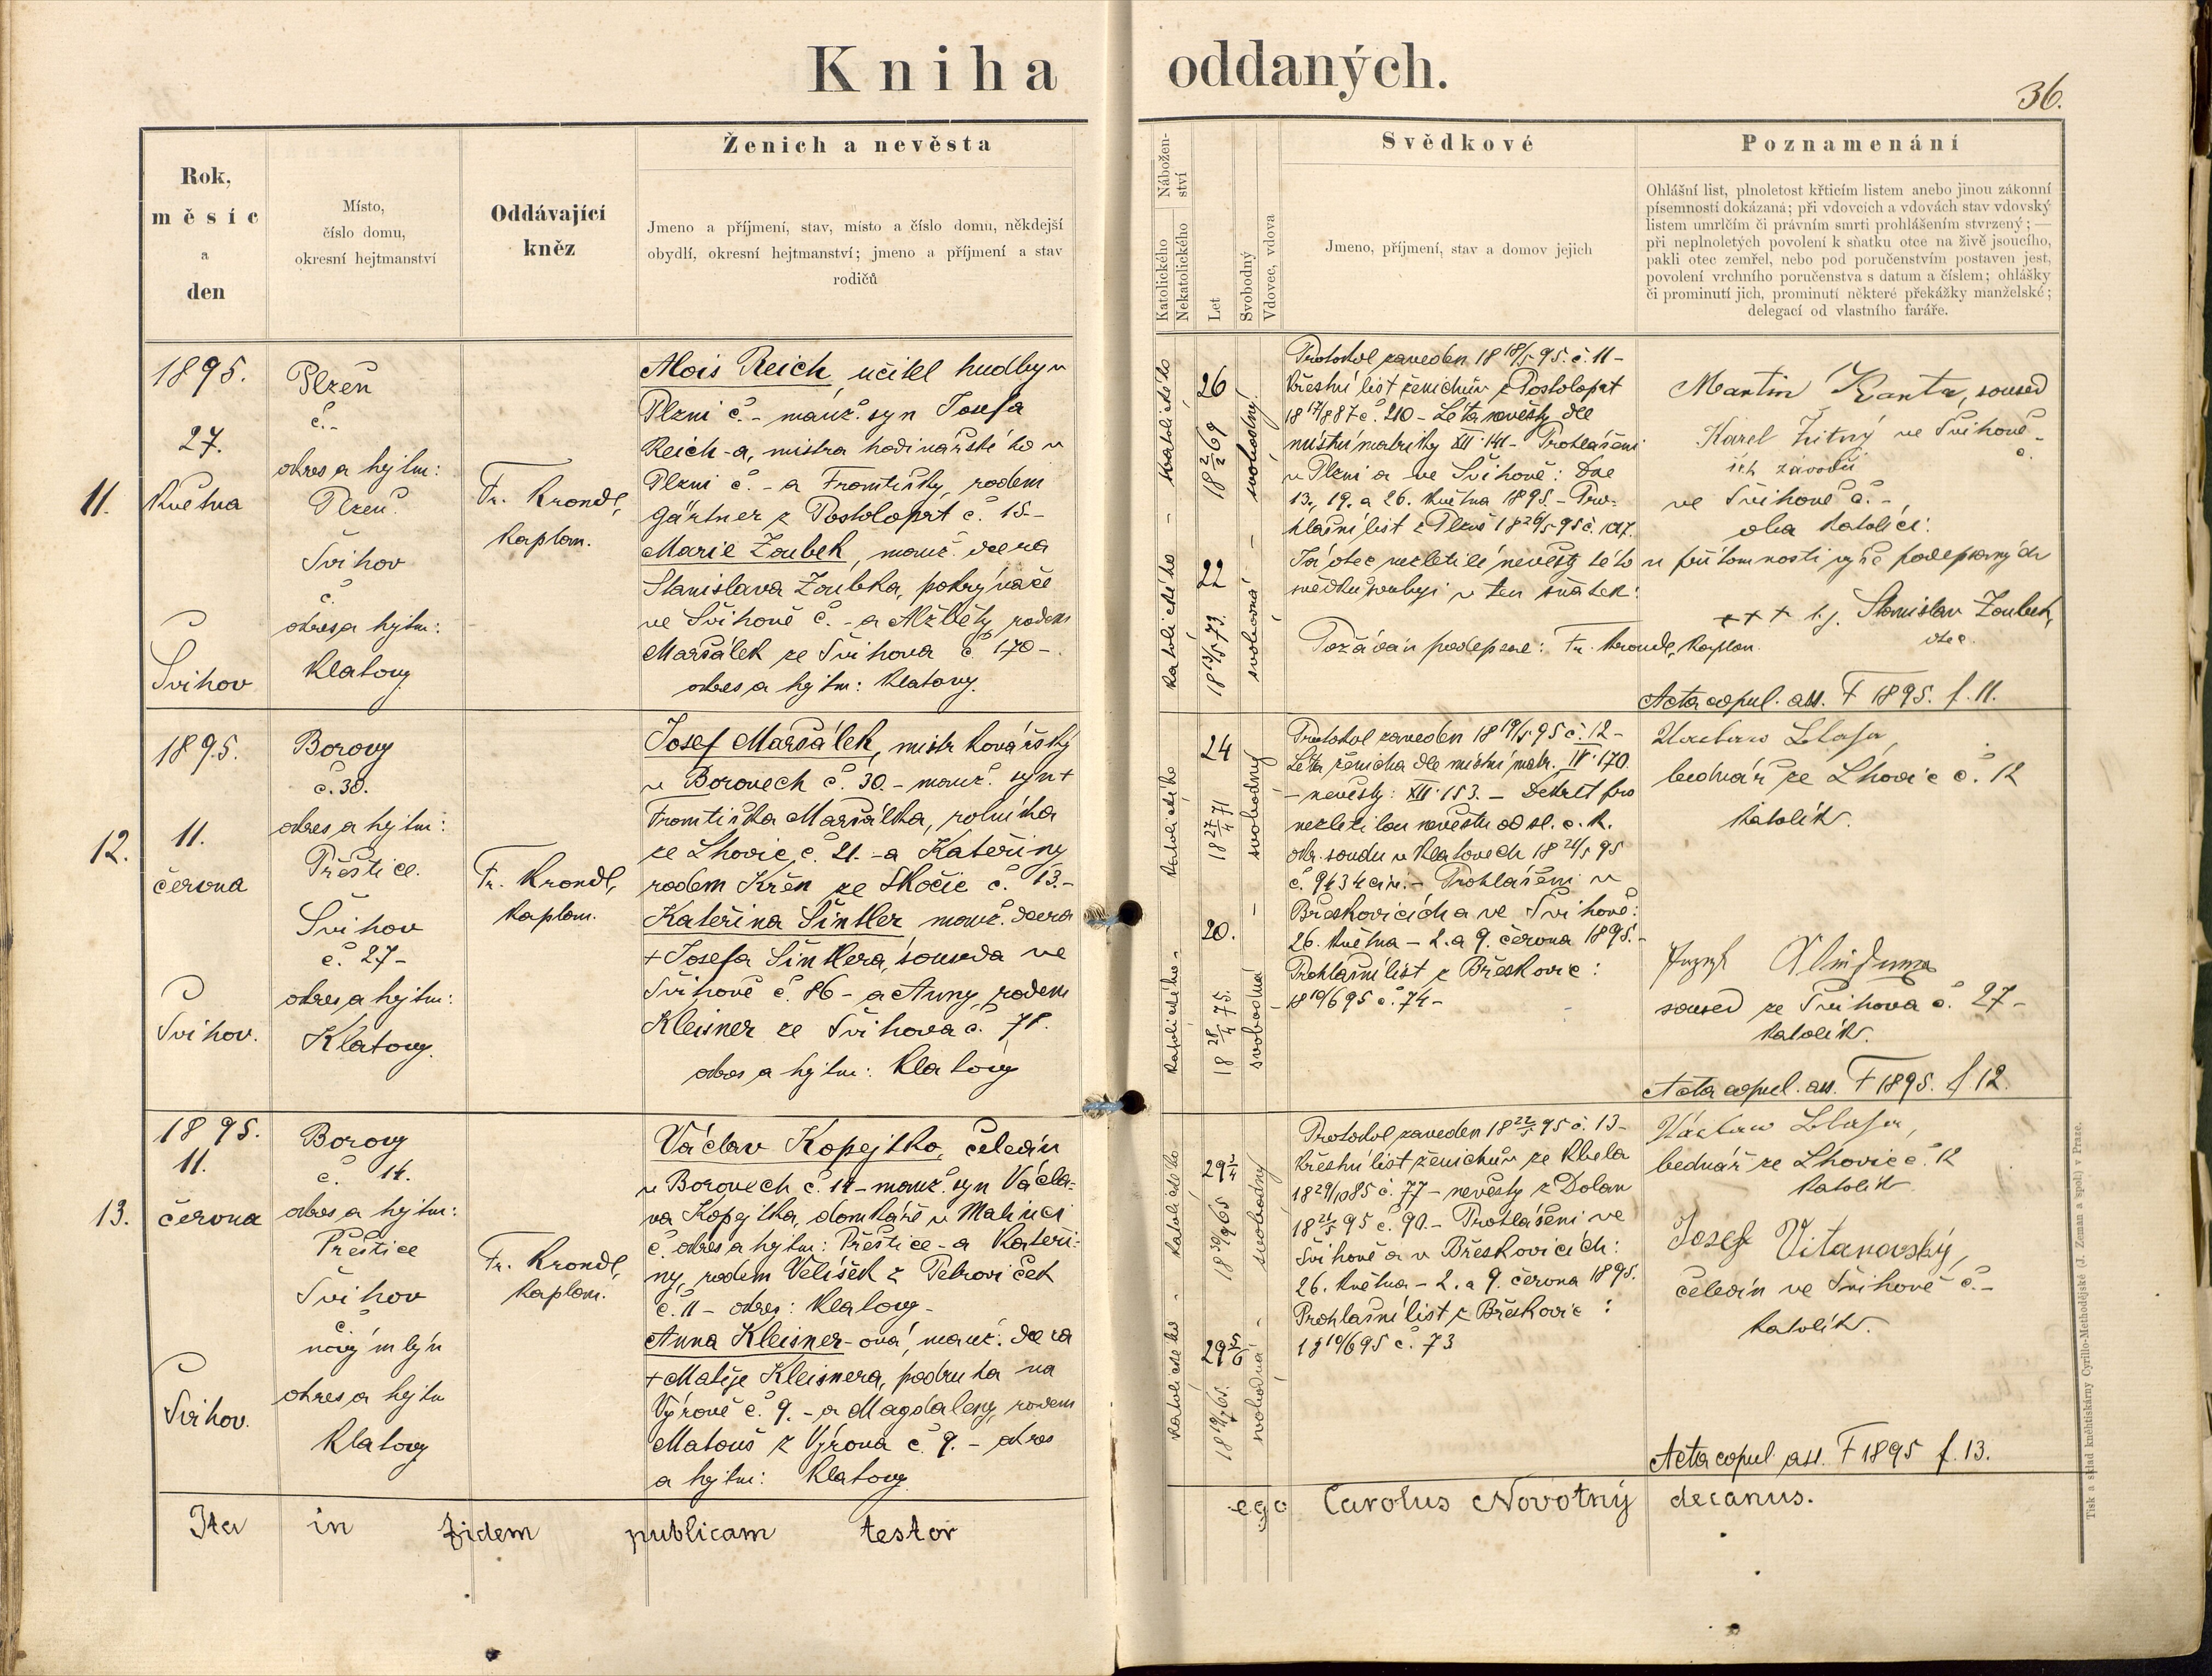 Kniha oddaných.
36.
Rok,
měsíc
a
den
Místo,
číslo domu,
okresní hejtmanství
Oddávající
kněz
Ženich a nevěsta
Jmeno a příjmení, stav, místo a číslo domu, někdejší
obydlí, okresní hejtmanství; jmeno a příjmení a stav
rodičů
Nábožen-
ství
Katolického
Nekatolického
Let
Svobodný
Vdovec, vdova
Svědkové
Jmeno, příjmení, stav a domov jejich
Poznamenání
Ohlášní list, plnoletost křticím listem anebo jinou zákonní
písemností dokázaná; při vdovcích a vdovách stav vdovský
listem umrlčím či právním smrti prohlášením stvrzený; —
při neplnoletých povolení k sňatku otce na živě jsoucího,
pakli otec zemřel, nebo pod poručenstvím postaven jest,
povolení vrchního poručenstva s datum a číslem; ohlášky
či prominutí jich, prominutí některé překážky manželské;
delegací od vlastního faráře.
11.
1895.
27.
Května
Švihov
Plzeň
č. -
okres a hejtm:
Plzeň.
Švihov
č.
okres a hejtm:
Klatovy
Fr. Krondl,
kaplan.
Alois Reich, učitel hudby v
Plzni č. - manž. syn Josefa
Reich-a, mistra hodinářského v
Plzni č. - a Františky, rodem
Gärtner z Postoloprt č. 15. -
Marie Zoubek, manž. dcera
Stanislava Zoubka, pokrývače
ve Švihově č. - a Alžběty, rodem
Maršálek ze Švihova č. 170 -
okres a hejtm: Klatovy.
katolického - katolického
26
18 2/2 69
22
18 13/5 73.
svobodný - svobodná
Protokol zaveden 18 18/5 95. č. 11 -
Křestní list ženichův z Postoloprt
18 17/8 87 č. 210 - Léta nevěsty dle
místní matriky XII. 141 - Prohlášení
v Plzni a ve Švihově: Dne
13., 19. a 26. května 1895. - Pro-
hlašní list z Plzně 18 26/5 95 č. 1047.
Já otec nezletilé nevěsty této v přítomnosti výše podepsaných
svědků svoluji v ten sňatek:
+++ t.j. Stanislav Zoubek,
otec
Požádán podepsal: Fr. Krondl, kaplan.
Martin Kanta, soused
Karel Žitný ve Švihově -
ve Švihově č. -
oba katolíci.
Acta copul. ass. F 1895. f. 11.
12.
1895.
11.
června
Švihov.
Borovy
č. 30.
okres a hejtm:
Přeštice.
Švihov
č. 27 -
okres a hejtm:
Klatovy.
Fr. Krondl,
kaplan.
Josef Maršálek, mistr kovářský
v Borovech č. 30. - manž. syn +
Františka Maršálka, rolníka
ze Lhovic č. 21. - a Kateřiny
rodem Křen ze Skočic č. 13. -
Kateřina Šintler manž. dcera
+ Josefa Šintlera, souseda ve
Švihově č. 86 - a Anny, rodem
Kleisner ze Švihova č. 78.
okres a hejtm: Klatovy
katolického - katolického -
24
18 27/4 71
20.
18 28/4 75.
svobodný - svobodná
Protokol zaveden 18 19/5 95 č. 12 -
Léta ženicha dle místní matr. IV. 170.
- nevěsty: XII. 153. - Dekret pro
nezletilou nevěstu od sl. c. k.
okr. soudu v Klatovech 18 24/5 95
č. 9434 civ. - Prohlášení v
Břeskovicích a ve Švihově:
26. května - 2. a 9. června 1895. -
Prohlašní list z Břeskovic:
18 10/6 95 č. 74 -
bednář ze Lhovic č. 12
katolík.
soused ze Švihova č. 27 -
katolík.
Acta copul. ass. F 1895. f. 12.
13.
1895.
11.
června
Švihov.
Borovy
č. 14.
okres a hejtm:
Přeštice
Švihov
č.
nový mlýn
okres a hejtm
Klatovy
Fr. Krondl,
kaplan.
Václav Kopejtko, čeledín
v Borovech č. 14 - manž. syn Václa-
va Kopejtka, domkáře v Malinci
č. okres a hejtm: Přeštice - a Kateři-
ny, rodem Velíšek z Petrovíček
č. 11 - okres: Klatovy -
Anna Kleisner-ová, manž. dcera
+ Matěje Kleisnera, podruha na
Výrově č. 9. - a Magdaleny, rodem
Matouš z Výrova č. 9. - okres
a hejtm: Klatovy
katolického - katolického
29 3/4
18 30/9 65
29 5/6
18 19/7 65.
svobodný - svobodná
Protokol zaveden 18 22/5 95 č. 13 -
Křestní list ženichův ze Kbela
18 29/10 85 č. 77 - nevěsty z Dolan
18 21/5 95 č. 90. - Prohlášení ve
Švihově a v Břeskovicích:
26. května - 2. a 9. června 1895.
Prohlašní list z Břeskovic:
18 10/6 95 č. 73
bednář ze Lhovic č. 12
katolík
Josef Vitanovský,
čeledín ve Švihově č. -
katolík.
Acta copul. ass. F 1895 f. 13.
Ita in fidem publicam testor ego Carolus Novotný decanus.
Tisk a sklad knihtiskárny Cyrillo-Methodějské (J. Zeman a spol.) v Praze.